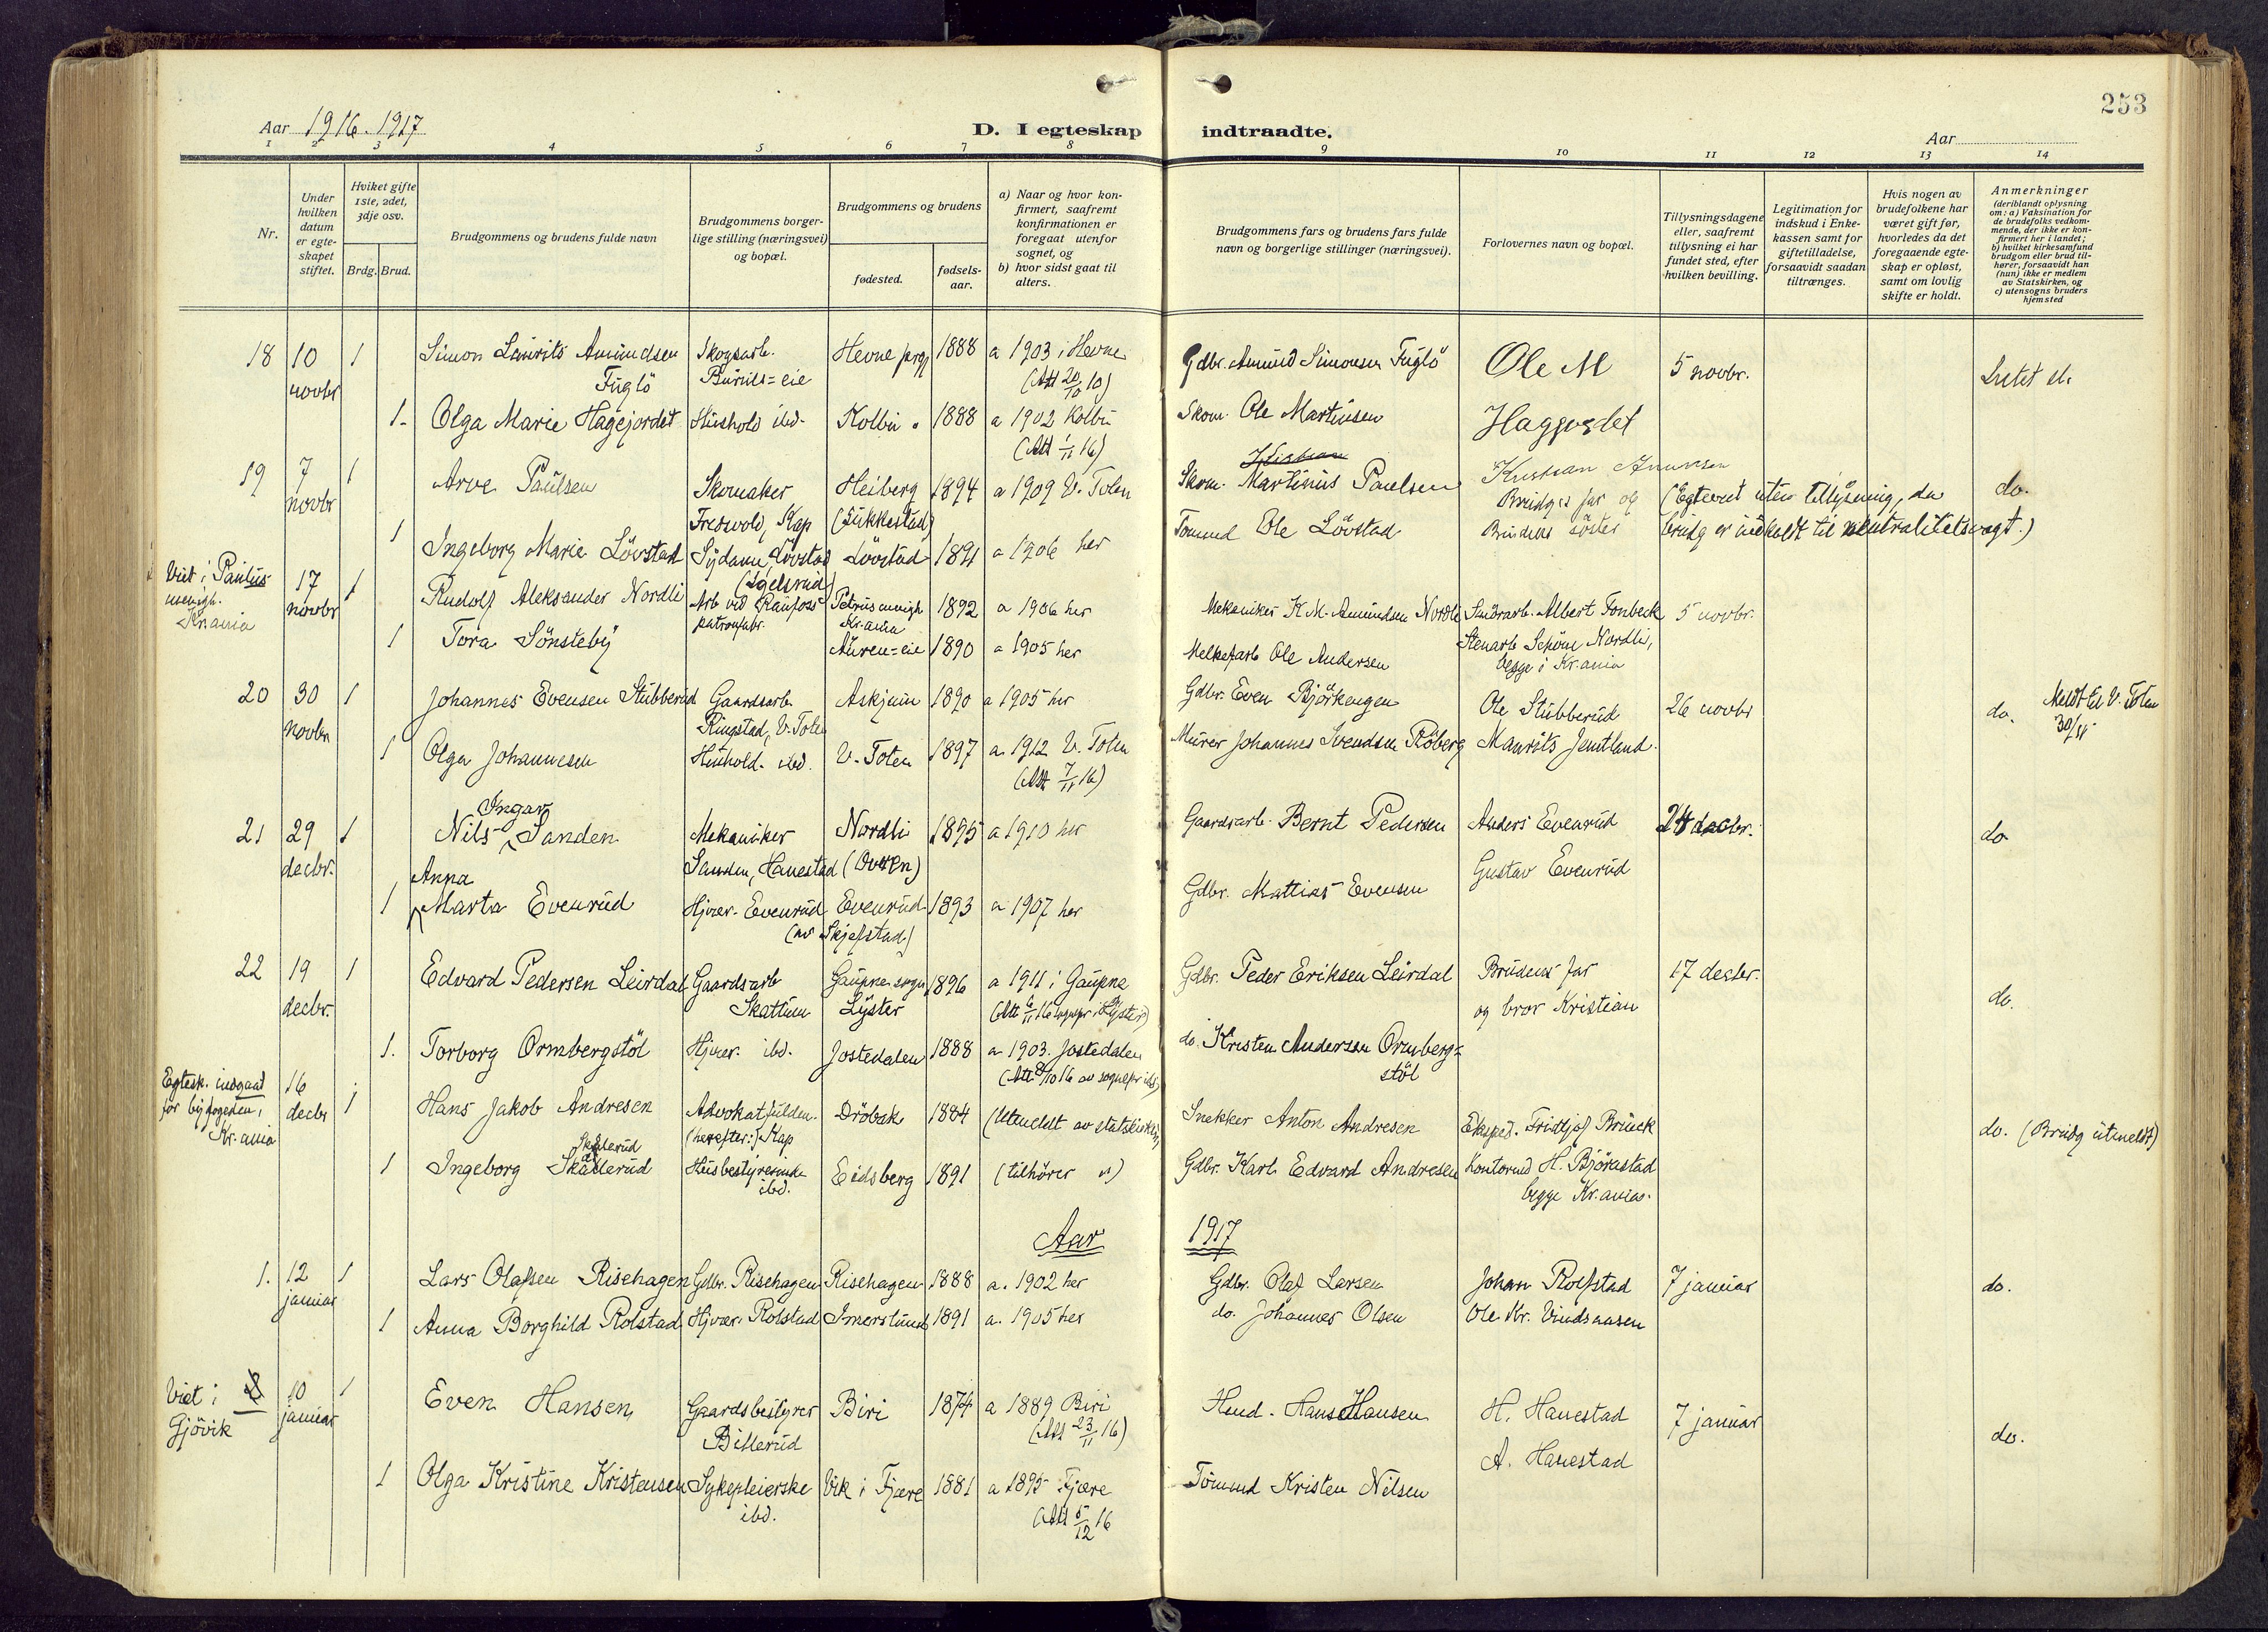 253
Aar 1916-1917
D. I egteskap indtraadte.
Aar
1 2 3 4 5 6 7 8 9 10 11 12 13 14
Nr.
Under hvilken datum er egte-skapet stiftet.
Hviket gifte 1ste, 2det, 3dje osv.
Brdg. Brud.
Brudgommens og brudens fulde navn
Brudgommens borger-lige stilling (næringsvei) og bopæl.
Brudgommens og brudens
fødested.
fødsels-aar.
a) Naar og hvor kon-firmert, saafremt konfirmationen er foregaat utenfor sognet, og
b) hvor sidst gaat til alters.
Brudgommens fars og brudens fars fulde navn og borgerlige stillinger (næringsvei).
Forlovernes navn og bopæl.
Tillysningsdagene eller, saafremt tillysning ei har fundet sted, efter hvilken bevilling.
Legitimation for indskud i Enke-kassen samt for giftetilladelse, forsaavidt saadan tiltrænges.
Hvis nogen av brudefolkene har været gift før, hvorledes da det foregaaende egte-skap er opløst, samt om lovlig skifte er holdt.
Anmerkninger
(deriblandt oplysning om: a) Vaksination for de brudefolks vedkom-mende, der ikke er kon-firmert her i landet;
b) hvilket kirkesamfund brudgom eller brud til-hører, forsaavidt han (hun) ikke er medlem av Statskirken, og
c) utensogns bruders hjemsted
18 10 novbr 1 Simon Laurits Amundsen Fuglö Skogsarb. Hevne prgj 1888 a 1903 i Hevne (Att 20/10 10) Gdbr. Amund Simonsen Fuglö Ole M 5 novbr.
1. Olga Marie Hagejordet Hushold ibd. Kolbu 1888 a 1902 Kolbu (Att 1/11 16) Skom. Ole Martinsen Haggordet
19 7 novbr 1 Arve Paulsen Skomaker Heiberg (Lukkestad) 1894 a 1909 V. Toten Skom. Martinus Paulsen Kristian
Brudgs far og Brudens (Egteviet uten tillysning, da brudg er indkaldt til neutralitetsvagt.) do.
1 Ingeborg Marie Lövstad Sydame, Lövstad Lövstad 1891 a 1906 her Tømmd Ole Lövstad
Viet i Paulus menigh. Kr.ania
17 novbr 1 Rudolf Aleksander Nordli Arb ved Raufoss patronfabr. Petrus menigh Kr.ania 1892 a 1906 her Mekaniker K. M. Amundsen Nordli Albert Tonbeck 5 novbr.
1 Tora Sönsteby Auren=eie 1890 a 1905 her Ole Andersen Stenarb Nordli, begge i Kr.ania
20 30 novbr 1 Johannes Evensen Stubberud Gaardsarb. Ringstad, V. Toten Askjum 1890 a 1905 her Gdbr. Even Björkengen Ole Stubberud 26 novbr do. Meldt til V. Toten 30/11
1 Olga Johannesen Hushold. ibd. V. Toten 1897 a. 1912 V. Toten (Att 7/11 16) Murer Johannes Svendsen Röberg Maurits Jemtland.
21 29 decbr. 1 Nils Ingar Sanden Mekaniker Sanden, Hanestad Nordli 1895 a 1910 her Gaardsarb. Bernt Pedersen Anders Evenrud 24 decbr. do
1 Anna Marta Evenrud Hjvær. Evenrud Evenrud (av Skjefstad) 1893 a 1907 her Gdbr. Mattias Evensen Gustav Evenrud
22 19 decbr. 1 Edvard Pedersen Leirdal Gaardsarb Skattum Gaupne sogn Lyster 1896 a 1911 i Gaupne (Att 6/11 16 sognepr i Lyster) Gdbr. Peder Eriksen Leirdal Brudens far og bror Kristian 17 decbr. do.
1. Torborg Ormbergstöl Hjvær. ibd. Jostedalen 1888 a 1903. Jostedalen (Att. 8/10 16 av sognepr ibd.) do. Kristen Andersen Ormberg-stöl
Egtesk. indgaat for byfogeden i Kr.ania
16 decbr 1 Hans Jakob Andresen Advokatfuldm. (herefter:) Kap Dröbak 1884 (Utmeldt av statskirken) Snekker Anton Andresen Eksped. Fridtjof Brueck do. (Brudg utmeldt)
1 Ingeborg Skallerud Husbestyrerinde ibd. Eidsberg 1891 (tilhörer ") Gdbr. Karl Edvard Andresen Kontormd H. Björnstad begge Kr.ania.
Aar 1917
1. 12 januar 1 Lars Olafsen Risehagen Gdbr. Risehagen Risehagen 1888 a. 1902 her Gdbr. Olaf Larsen Johan Rolfstad 7 januar do.
1 Anna Borghild Rolstad Hjvær. Rolstad Imerslund 1891 a. 1905 her do. Johannes Olsen Ole Kr.
Viet i Gjövik 2 10 januar 1 Even Hansen Gaardsbestyrer Billerud Biri 1874 a 1889 Biri (Att 23/11 16) Hmd. Hans Hansen H. Hanestad 7 januar do.
1 Olga Kristine Kristensen Sykepleierske ibd. Vik i Fjære 1881 a 1895 Fjære (Att 5/12 16 Tömmd Kristen Nilsen A. Hanestad